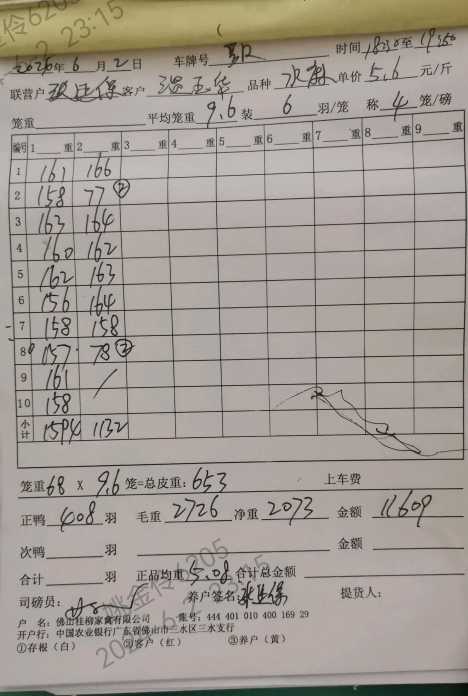 2026年6月2日 车牌号 时间18:30至19:50
联营户 客户 温玉华 品种 次麻 单价5.6元/斤
笼重 平均笼重9.6装6羽/笼 称4笼/磅
编号 1 重 2 重 3 重 4 重 5 重 6 重 7 重 8 重 9 重
1 161 166
2 158 77 ②
3 163 164
4 160 162
5 162 163
6 156 164
7 158 158
8 157 78 ②
9 161 /
10 158
小计 1594 1132
笼重68 X 9.6笼=总皮重:653 上车费
正鸭408羽 毛重2726 净重2073 金额11609
次鸭 羽 金额
合计 羽 正品均重5.08合计总金额
司磅员: 养户签名: 提货人:
户 名:佛山桂柳家禽有限公司 账号:444 401 010 400 169 29
开户行:中国农业银行广东省佛山市三水区三水支行
①存根(白) ②客户(红) ③养户(黄)
姚金伶6205
2026-6-2 23:15